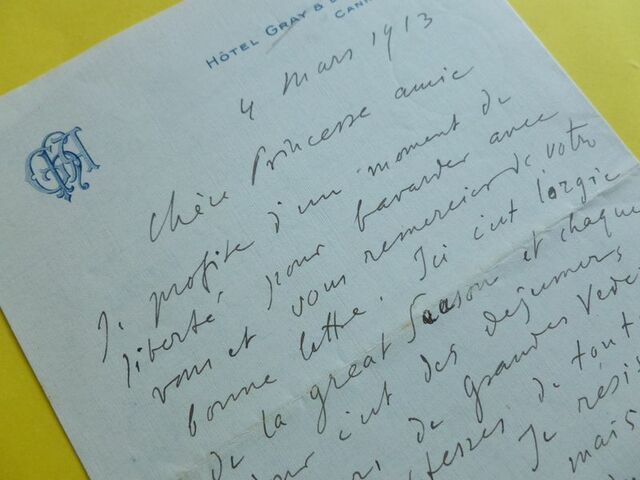 HÔTEL GRAY &
CANN
4 mars 1913
Chère Princesse amie
Je profite d'un moment de
liberté pour bavarder avec
vous et vous remercier de votre
bonne lettre. Ici c'est l'orgie
de la great Season et chaque
jour c'est des déjeuners
de grandes Vede
de tout
Je résis
mais